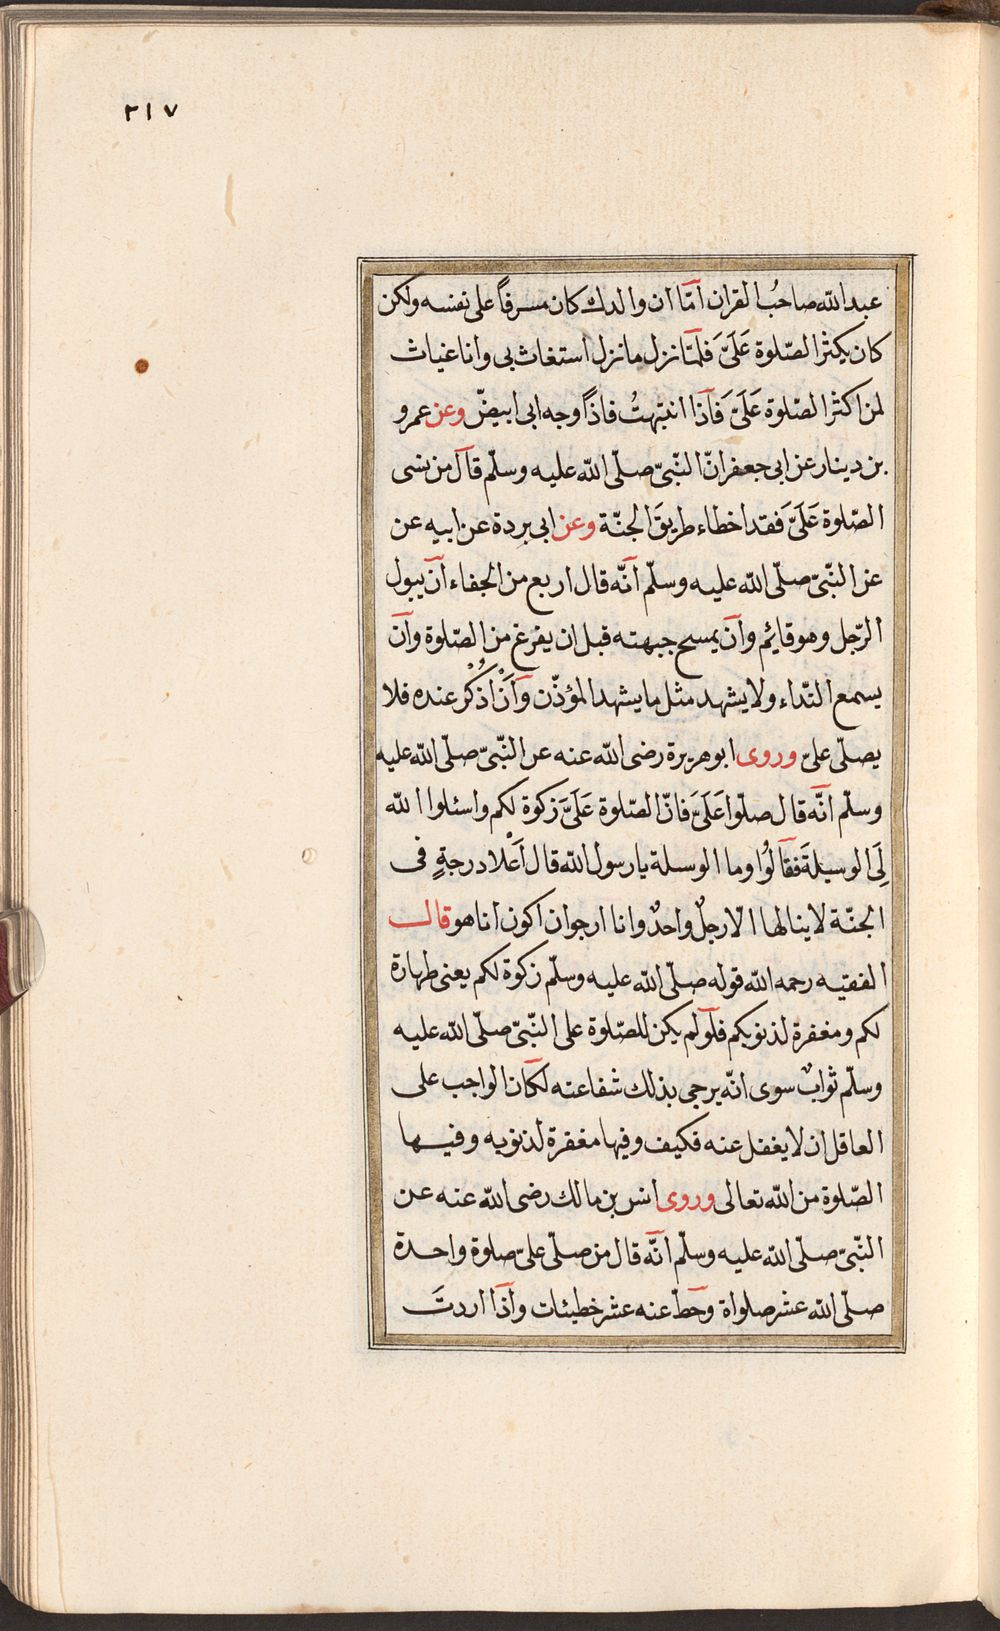 ٢١٧
عبد الله صاحبُ القران امّا ان والدك كان مسرفاً على نفسه ولكن
كان يكثر الصّلوة عَلَىَّ فلمّا نزل ما نزل استغاث بى وانا غياث
لمن اكثر الصّلوة عَلَىَّ فاذا انتبهتُ فاذاً وجه ابى ابيضّ وعن عمرو
بن دينار عن ابى جعفر انّ النّبىّ صلّى الله عليه وسلّم قال من نسى
الصّلوة عَلَىَّ فقد اخطاء طريقَ الجنّة وعن ابى بردة عن ابيه عن
عن النّبىّ صلّى الله عليه وسلّم انّه قال اربع من الجفاء ان يبول
الرّجل وهو قايئم وان يمسح جبهته قبل ان يفرغ من الصّلوة وان
يسمع النّداء ولا يشهد مثل ما يشهد المؤذّن وَاَنْ اُذْكَُر عنده فلا
يصلّى علىّ وروى ابو هريرة رضى الله عنه عن النّبىّ صلّى الله عليه
وسلّم انّه قال صلّوا عَلَىَّ فانّ الصّلوة عَلَىَّ زكوة لكم واسئلوا الله
لِىَ الوسيلَةَ فقالُوا وما الوسلة يا رسول الله قال اَعْلا درجةٍ فى
الجنّة لا ينالها الّا رجلٌ واحدٌ وانا ارجو ان اكون انا هو قال
الفقيه رحمه الله قوله صلّى الله عليه وسلّم زكوة لكم يعنى طهارة
لكم ومغفرة لذنوبكم فلو لم يكن للصّلوة على النّبىّ صلّى الله عليه
وسلّم ثوابٌ سوى انّه يرجى بذلك شفاعته لكان الواجب على
العاقل ان لا يغفل عنه فكيف وفيها مغفرة لذنوبه وفيها
الصّلوة من الله تعالى وروى انس بن مالك رضى الله عنه عن
النّبىّ صلّى الله عليه وسلّم انّه قال من صلّى علىّ صلوة واحدة
صلّى الله عشر صلواة وحط عنه عشر خطيئات واذا اردتَ